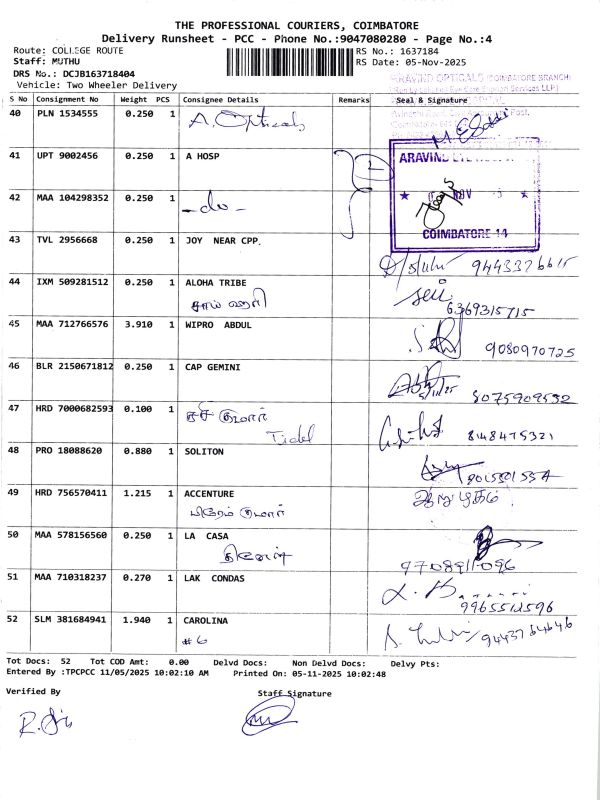 THE PROFESSIONAL COURIERS, COIMBATORE
Delivery Runsheet - PCC - Phone No.:9047080280 - Page No.:4
Route: COLLEGE ROUTE RS No.: 1637184
Staff: MUTHU RS Date: 05-Nov-2025
DRS No.: DCJB163718404
Vehicle: Two Wheeler Delivery
ARAVIND OPTICALS (COIMBATORE BRANCH)
S No Consignment No Weight PCS Consignee Details Remarks Seal & Signature
40 PLN 1534555 0.250 1 A. Opticals
41 UPT 9002456 0.250 1 A HOSP
42 MAA 104298352 0.250 1 -do-
COIMBATORE 14
43 TVL 2956668 0.250 1 JOY NEAR CPP.
44 IXM 509281512 0.250 1 ALOHA TRIBE
6369315715
45 MAA 712766576 3.910 1 WIPRO ABDUL
9080970725
46 BLR 2150671812 0.250 1 CAP GEMINI
8075909532
47 HRD 7000682593 0.100 1
Tidel 8148475321
48 PRO 18088620 0.880 1 SOLITON
49 HRD 756570411 1.215 1 ACCENTURE
பிரேம் குமார் ஆறுமுகம்
50 MAA 578156560 0.250 1 LA CASA
தினேஷ் 9708911096
51 MAA 710318237 0.270 1 LAK CONDAS
52 SLM 381684941 1.940 1 CAROLINA
#6 9443764646
Tot Docs: 52 Tot COD Amt: 0.00 Delvd Docs: Non Delvd Docs: Delvy Pts:
Entered By :TPCPCC 11/05/2025 10:02:10 AM Printed On: 05-11-2025 10:02:48
Verified By Staff Signature